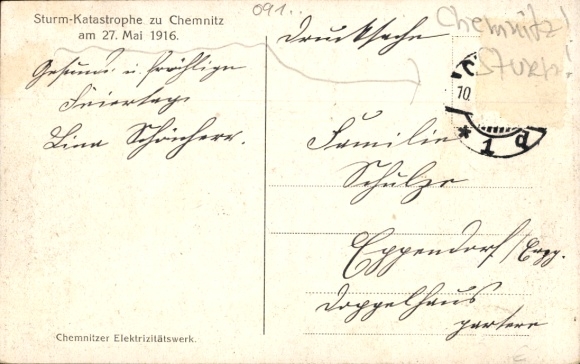 Sturm-Katastrophe zu Chemnitz
am 27. Mai 1916.
091..
Drucksache
Chemnitz!
Sturm!
Gesunde u. fröhliche
Feiertage
Lina Schönherr.
C
10.
* 1 d
Familie
Schulze
Eppendorf/Erzg.
Doppelhaus
partere
Chemnitzer Elektrizitätswerk.